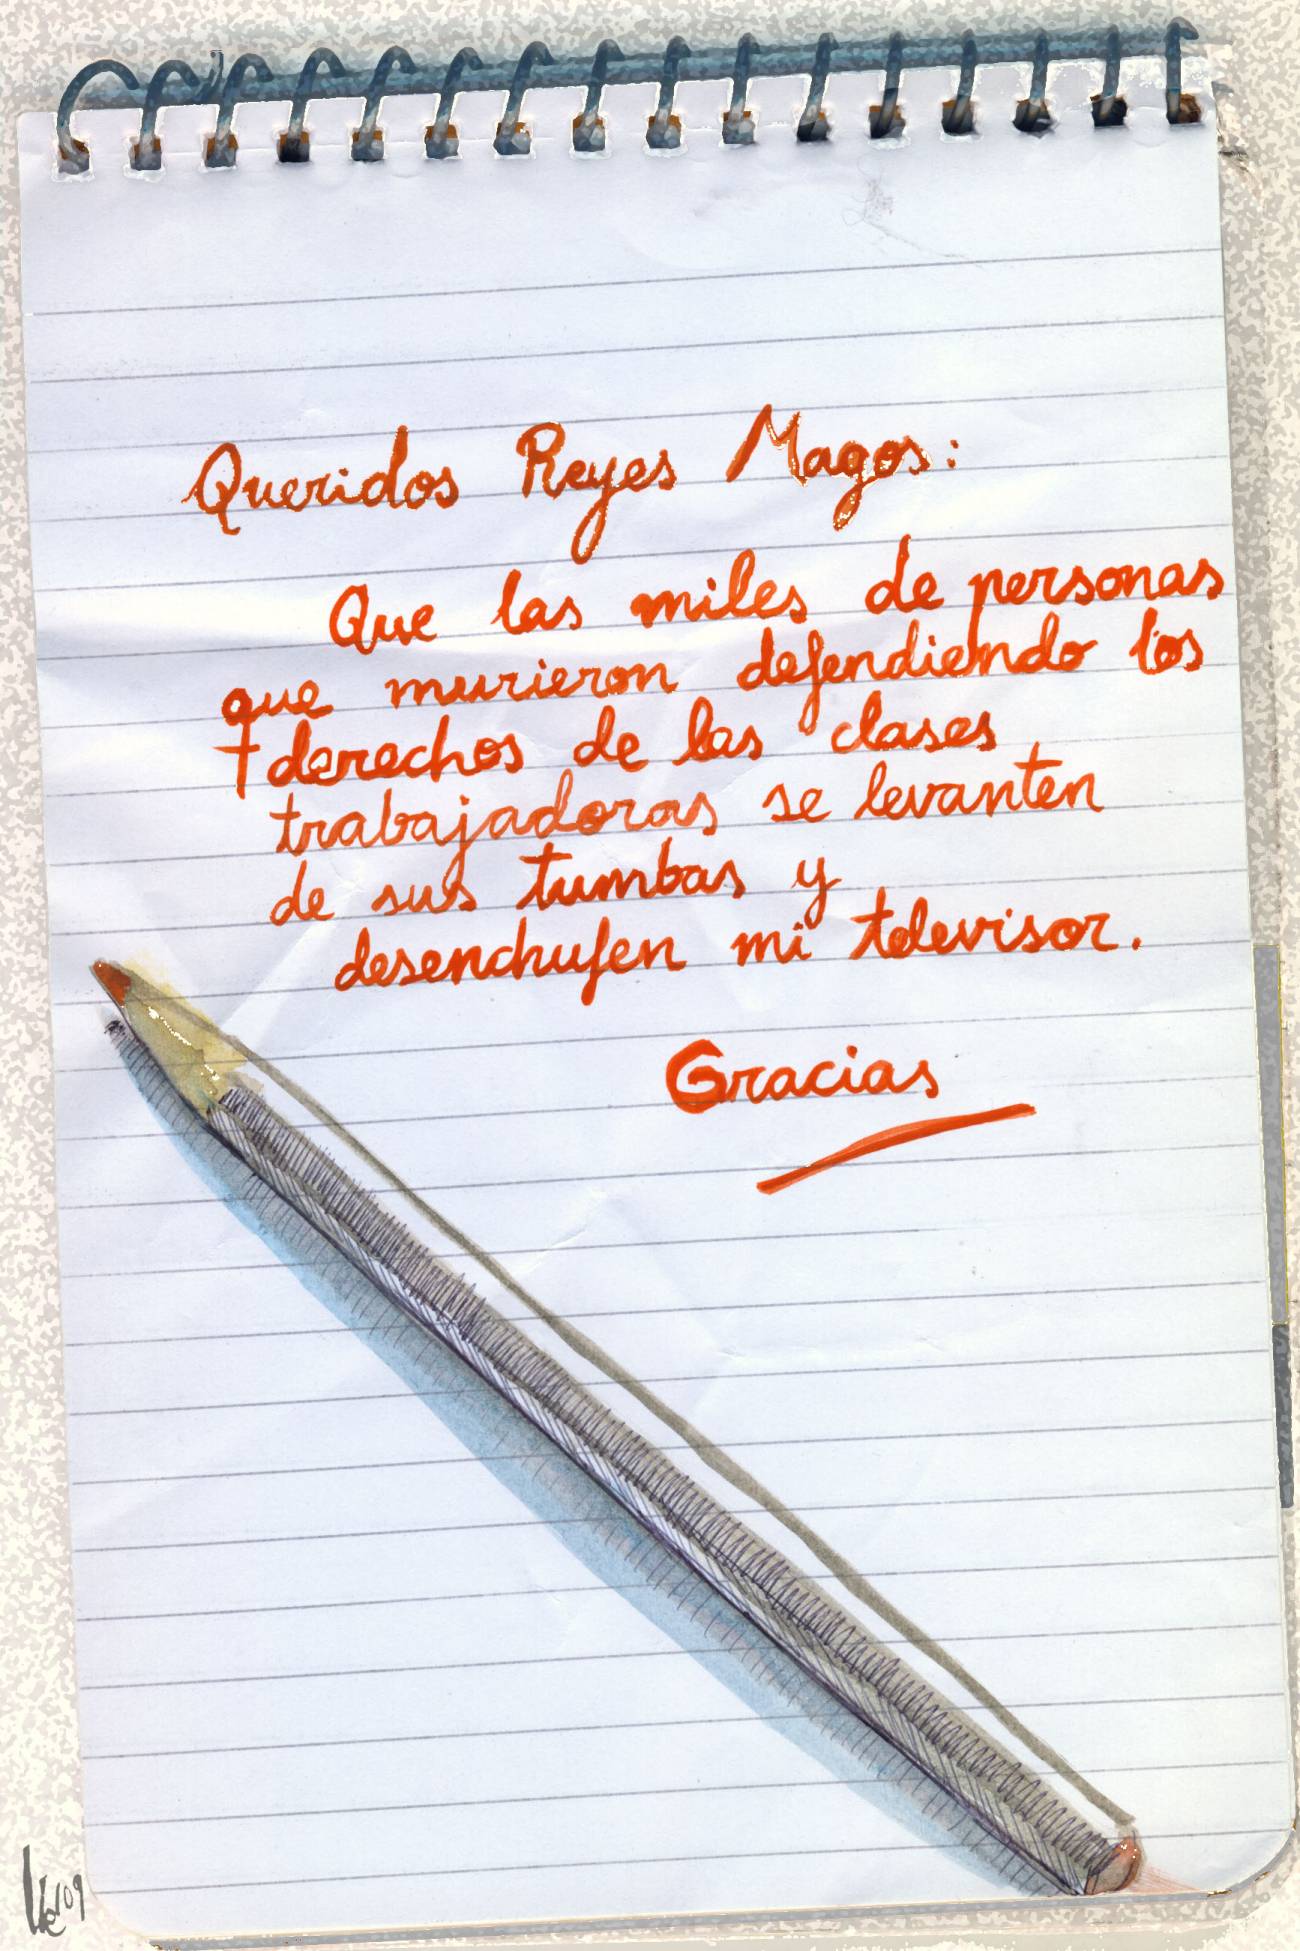 Queridos Reyes Magos:
Que las miles de personas
que murieron defendiendo los
derechos de las clases
trabajadoras se levanten
de sus tumbas y
desenchufen mi televisor.
Gracias